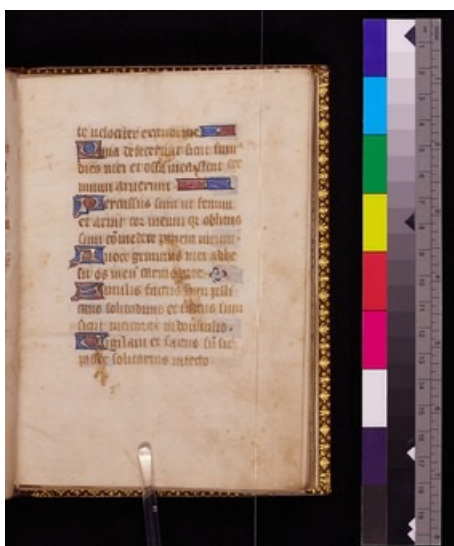 te velociter exaudi me
Quia defecerunt sicut fum
dies mei et ossa mea sicut cre
mium aruerunt
Percussus sum ut fenum
et aruit cor meum qr oblitus
sum comedere panem meum.
A voce gemitus mei adhe
sit os meu carni mee.
Similis factus sum pelli
cano solitudinis et factus sum
sicut nicticorax in domicilio.
Vigilavi et factus su sic
passer solitarius in tecto